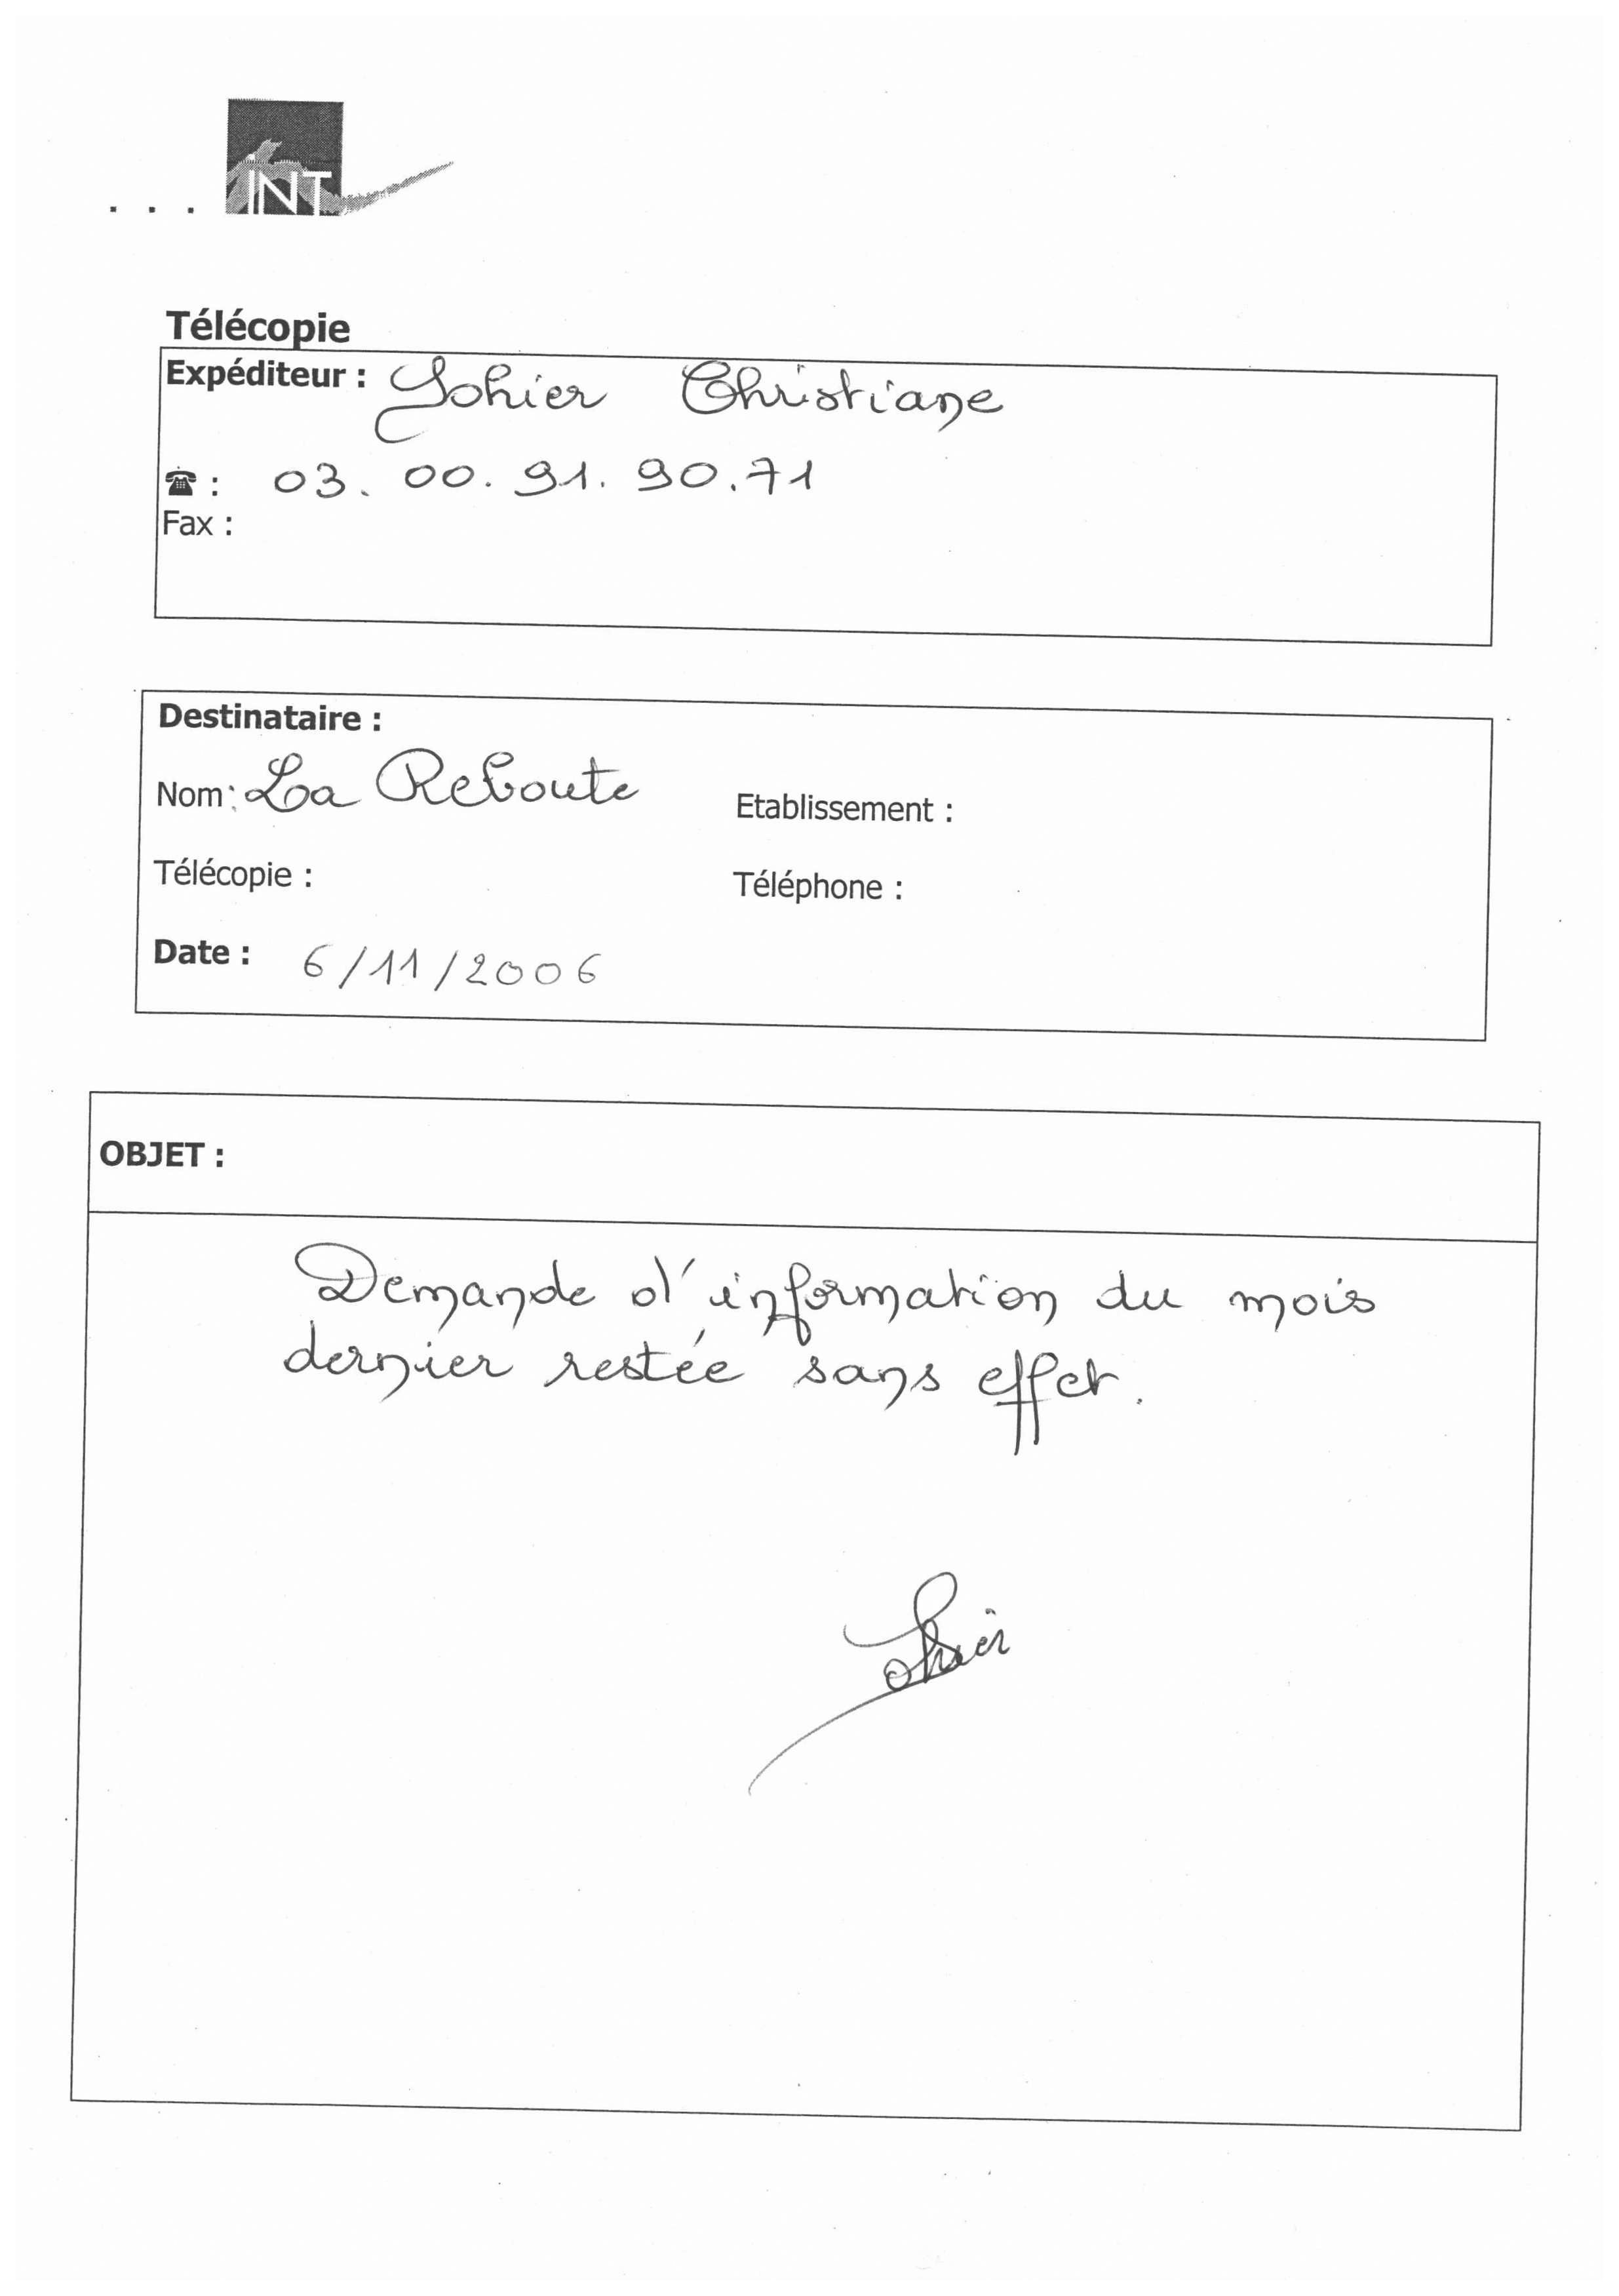 ... INT
Télécopie
Expéditeur : Sohier Christiane
☎ : 03. 00. 91. 90. 71
Fax :
Destinataire :
Nom : La Reboute Etablissement :
Télécopie : Téléphone :
Date : 6/11/2006
OBJET :
Demande d'information du mois
dernier restée sans effet.